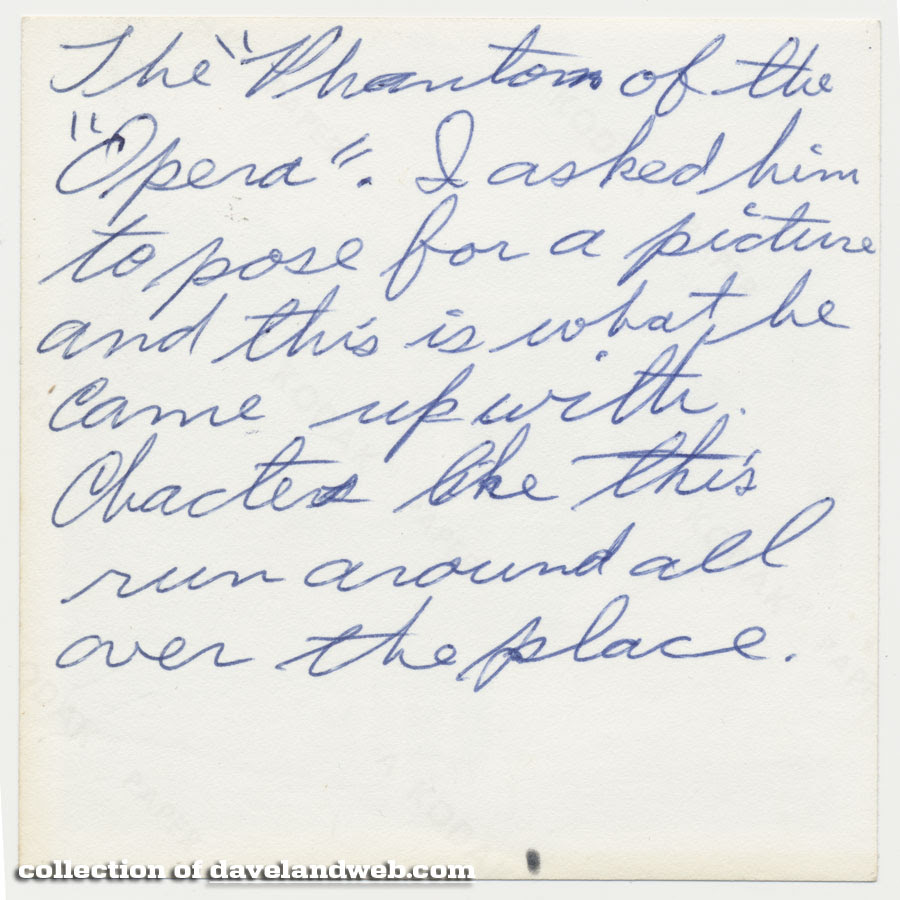 The "Phantom of the
"Opera". I asked him
to pose for a picture
and this is what he
came up with.
Chacters like this
run around all
over the place.
collection of davelandweb.com